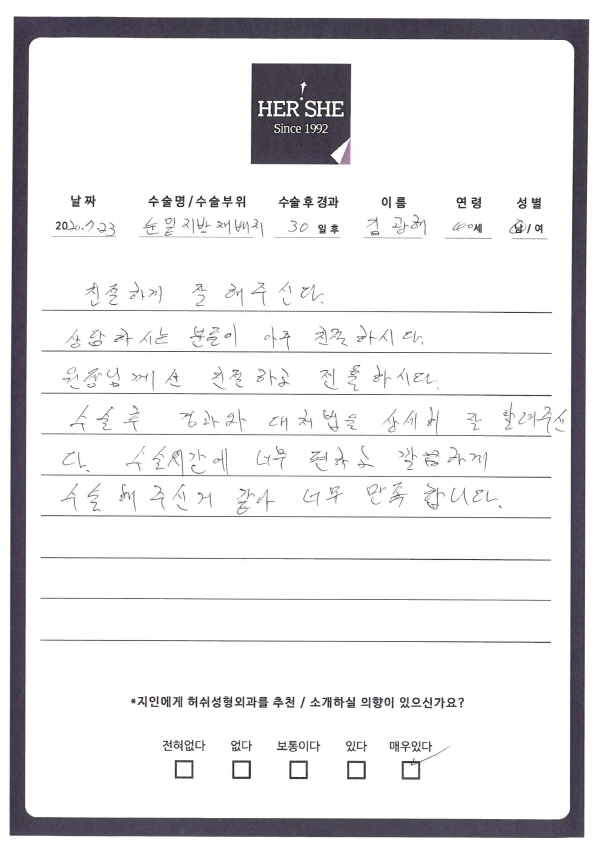 HER SHE
Since 1992
날 짜 수술명/수술부위 수술 후 경과 이 름 연 령 성 별
2020.7.23 눈밑지방재배치 30 일 후 김광해 40세 남/여
친절하게 잘 해주신다.
상담하시는 분들이 아주 친절하시다.
원장님께선 친절하고 젠틀하시다.
수술후 경과와 대처법을 상세히 잘 알려주신
다. 수술시간에 너무 편하고 깔끔하게
수술해주신거 같아 너무 만족합니다.
*지인에게 허쉬성형외과를 추천 / 소개하실 의향이 있으신가요?
전혀없다 없다 보통이다 있다 매우있다